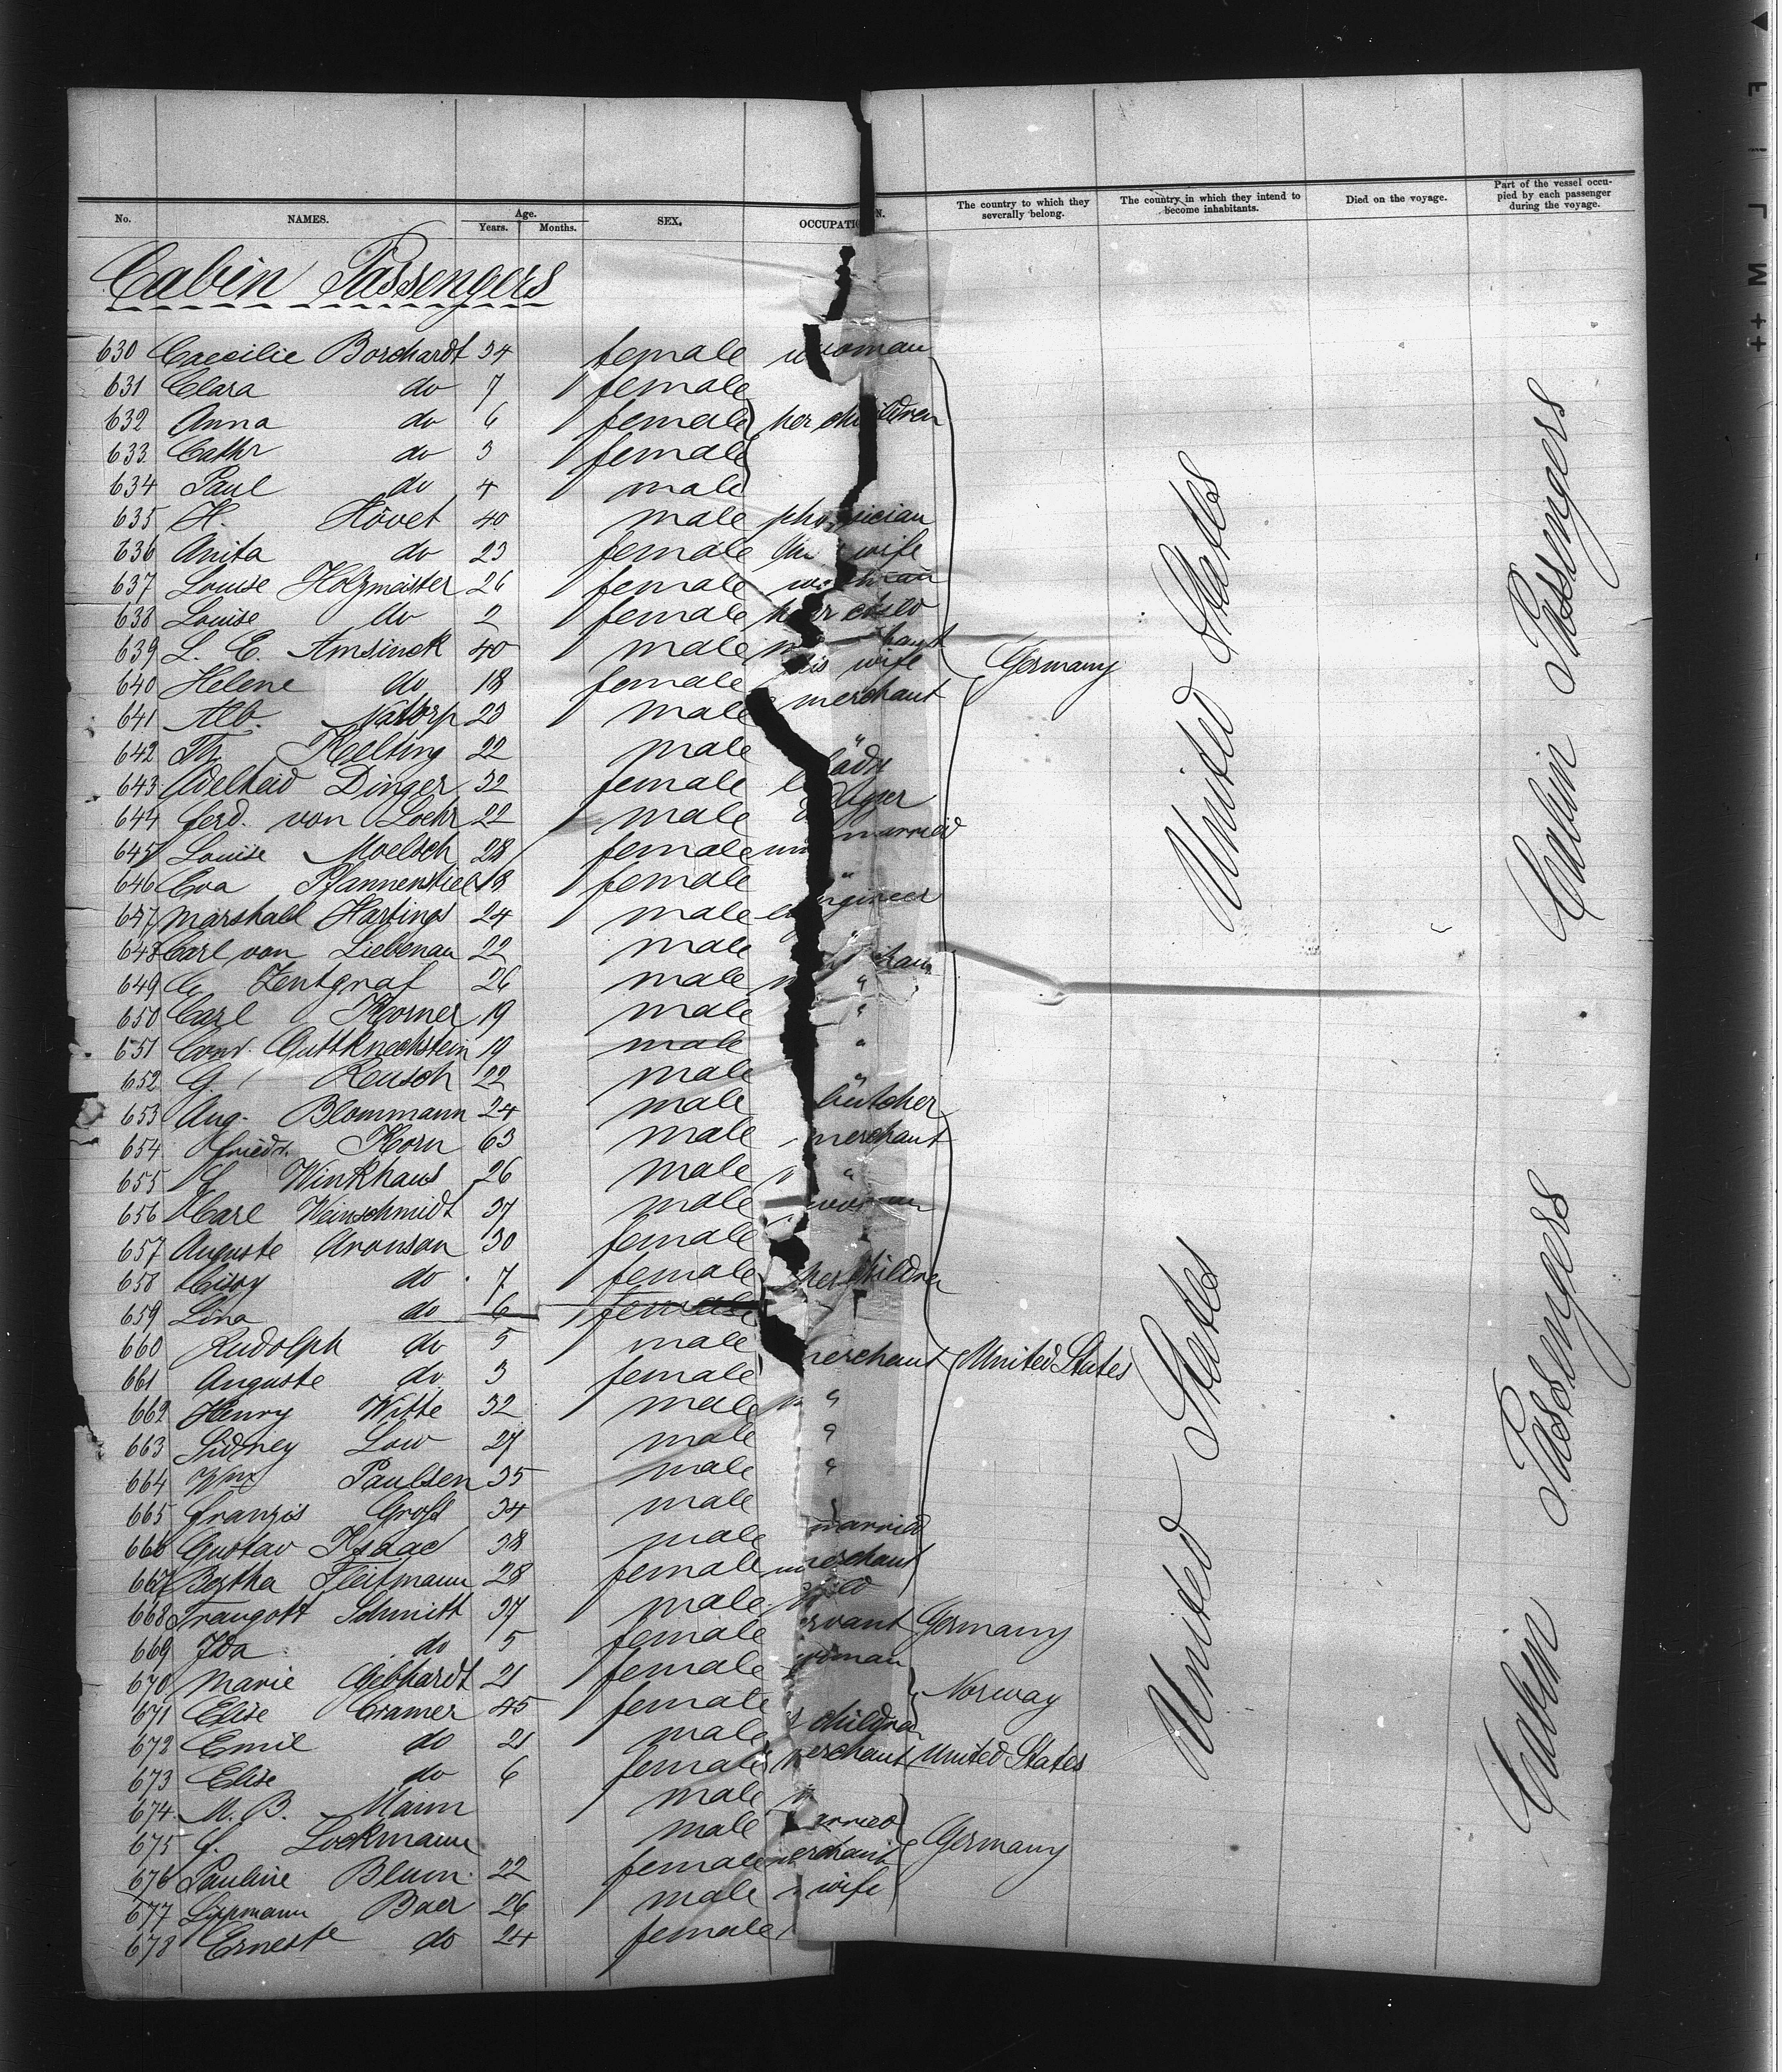 No. NAMES. Age. Years. Months. SEX. OCCUPATION. The country to which they severally belong. The country in which they intend to become inhabitants. Died on the voyage. Part of the vessel occupied by each passenger during the voyage.
Cabin Passengers
630 Caecilie Borchardt 34 female woman
631 Clara do 7 female
632 Anna do 6 female her children
633 Cathr do 3 female
634 Paul do 4 male
635 H. Hövet 40 male physician
636 Anita do 23 female wife
637 Louise Holzmeister 26 female woman
638 Louise do 2 female her child
639 L. E. Amsinck 40 male
640 Helene do 18 female his wife Germany
641 Alb. Natorp 23 male merchant
642 Th. Kelting 22 male "
643 Adelheid Dinger 32 female
644 Ferd. von Loehr 22 male
645 Louise Moelsch 28 female unmarried
646 Eva Pfannenstiel 18 female "
647 Marshall Hastings 24 male engineer
648 Carl von Liebenau 22 male "
649 C. Zentgraf 26 male
650 Carl Korner 19 male "
651 Conr. Guttknechstein 19 male "
652 G. Reusch 22 male "
653 Aug. Blommann 24 male butcher
654 Friedr. Korn 63 male merchant
655 Winkhaus 26 male "
656 Carl Weinschmidt 37 male
657 Auguste Aronson 30 female
658 do 7 female her children
659 Lina do 6 female
660 Rudolph do 5 male merchant United States
661 Auguste do 3 female
662 Henry Witte 32 male "
663 Sidney Low 27 male "
664 Wm Paulsen 35 male "
665 Franzis Groß 34 male
666 Gustav Isaac 38 male married
667 Bertha Fleitmann 28 female merchant
668 Traugott Schmitt 37 male child
669 Ida do 5 female servant Germany
670 Marie Gebhardt 21 female woman
671 Elise Cramer 45 female Norway
672 Emil do 21 male children
673 Elise do 6 female merchant United States
674 M. B. Mann male
675 Lockmann male
676 Pauline Blum 22 female merchant Germany
677 Lippmann Baer 26 male wife
678 Erneste do 24 female
United States
United States
Cabin Passengers
Cabin Passengers